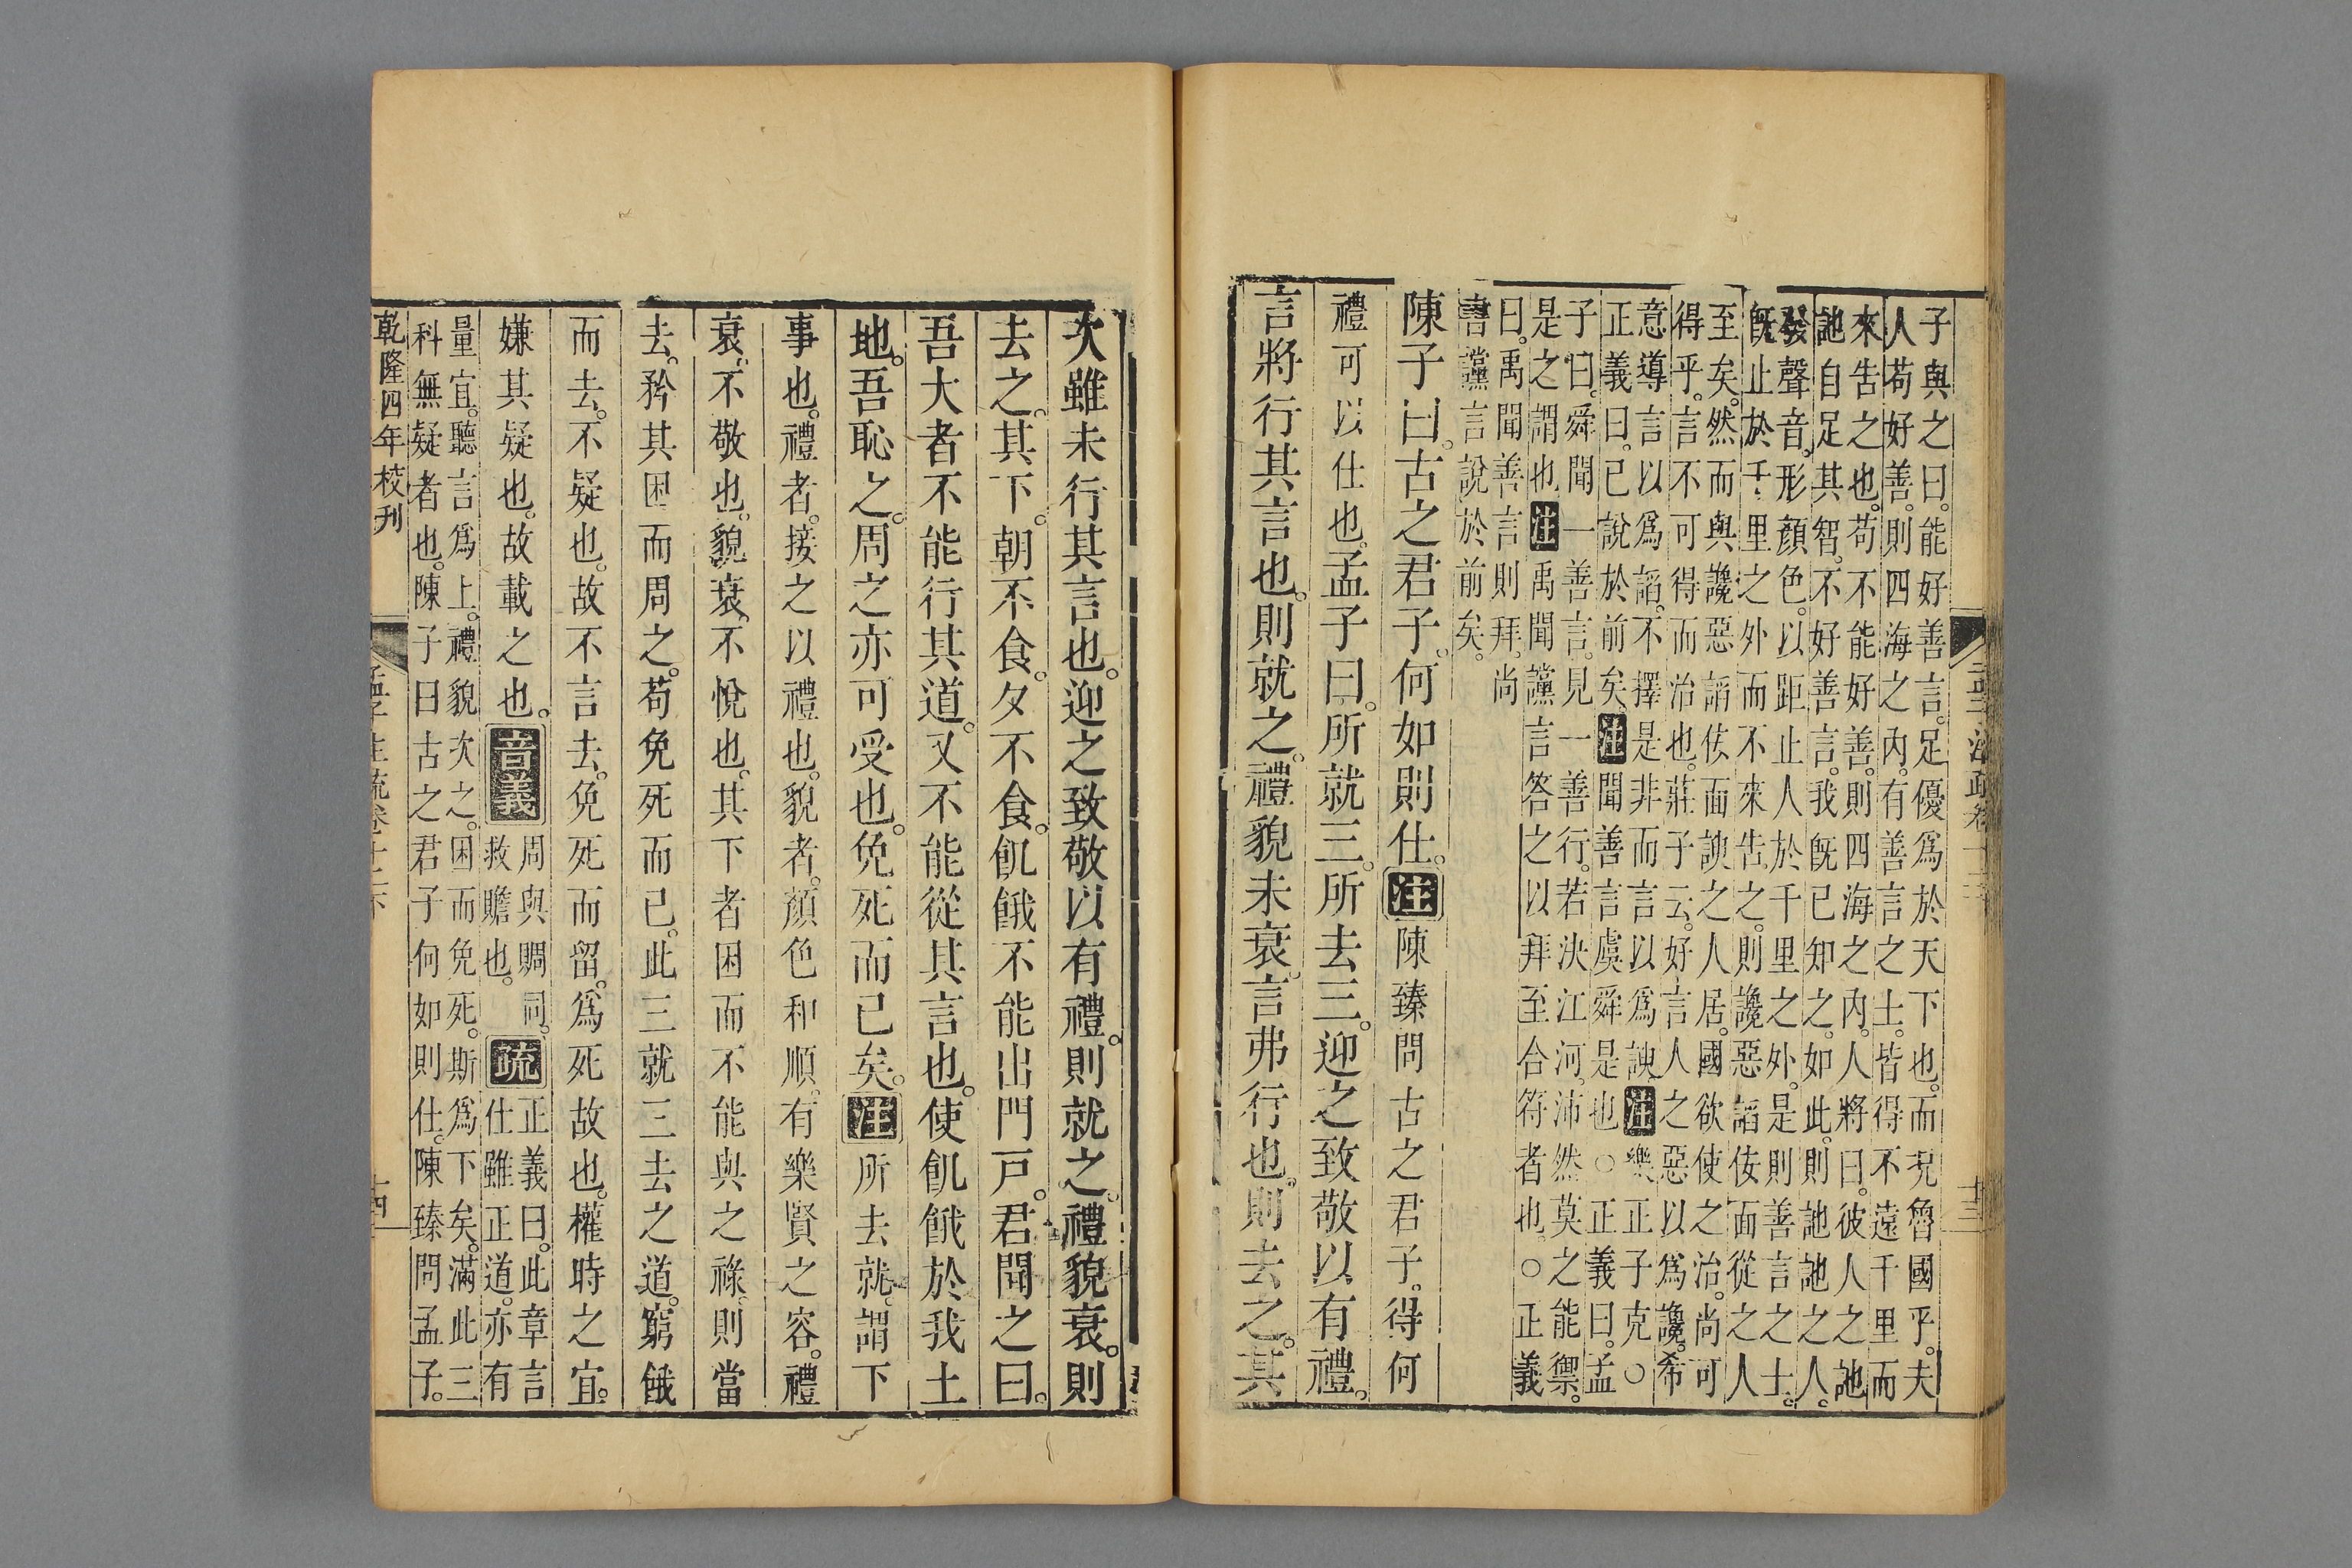 孟子注疏卷十二下
十三
子與之曰。能好善言。足優爲於天下也。而況魯國乎。夫
人苟好善。則四海之內。有善言之士。皆得不遠千里而
來告之也。苟不能好善。則四海之內。人將曰。彼人之訑
訑自足其智。不好善言。我旣已知之。如此。則訑訑之人。
發聲音。形顏色。以距止人於千里之外。是則善言之士。
旣止於千里之外而不來告之。則讒惡謟佞面從之人
至矣。然而與讒惡謟佞面諛之人居。國欲使之治。尚可
得乎。言不可得而治也。莊子云。好言人之惡以爲讒。希
意導言以爲謟。不擇是非而言以爲諛注樂正子克○
正義曰。已說於前矣。注聞善言虞舜是也○正義曰。孟
子曰。舜聞一善言。見一善行。若決江河。沛然莫之能禦。
是之謂也注禹聞讜言答之以拜至合符者也。○正義
曰。禹聞善言則拜。尚
書讜言說於前矣。
陳子曰。古之君子。何如則仕。注陳臻問古之君子。得何
禮可以仕也。孟子曰。所就三。所去三。迎之致敬以有禮。
言將行其言也。則就之。禮貌未衰。言弗行也。則去之。其
次雖未行其言也。迎之致敬以有禮。則就之。禮貌衰。則
去之。其下。朝不食。夕不食。飢餓不能出門戸。君聞之曰。
吾大者不能行其道。又不能從其言也。使飢餓於我土
地。吾恥之。周之亦可受也。免死而已矣。注所去就。謂下
事也。禮者。接之以禮也。貌者。顏色和順。有樂賢之容。禮
衰。不敬也。貌衰。不悅也。其下者困而不能與之祿。則當
去。矜其困而周之。苟免死而已。此三就三去之道。窮餓
而去。不疑也。故不言去。免死而留。爲死故也。權時之宜。
嫌其疑也。故載之也。音義
周與賙同。
救贍也。
疏
正義曰。此章言
仕雖正道。亦有
量宜。聽言爲上。禮貌次之。困而免死。斯爲下矣。滿此三
科無疑者也。陳子曰古之君子何如則仕。陳臻問孟子。
乾隆四年校刊
孟子注疏卷十二下
十四